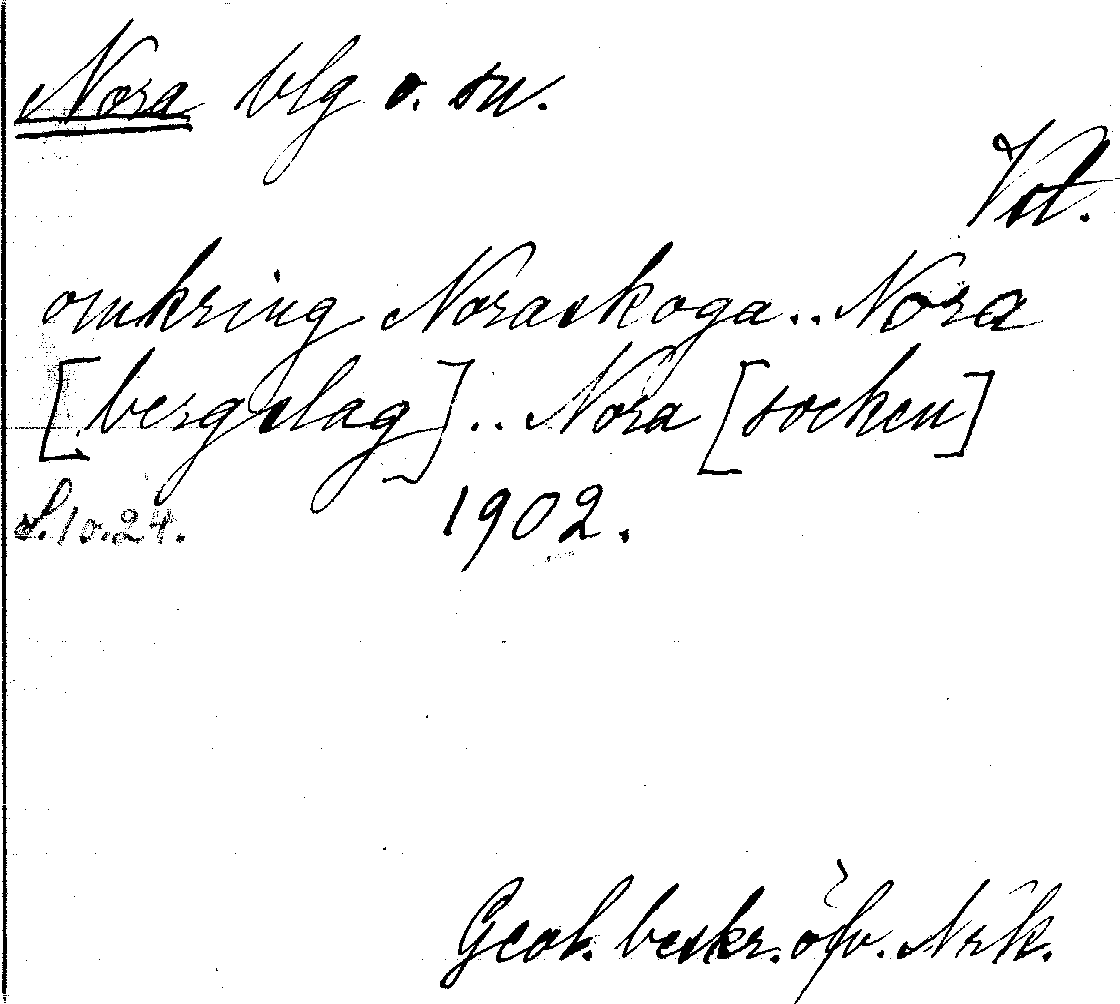 Nora blg o. sn.
Vstm.
omkring Noraskoga.. Nora
[bergslag].. Nora [socken]
S. 10. 24. 1902.
Geol. beskr. öfv. Nrk.